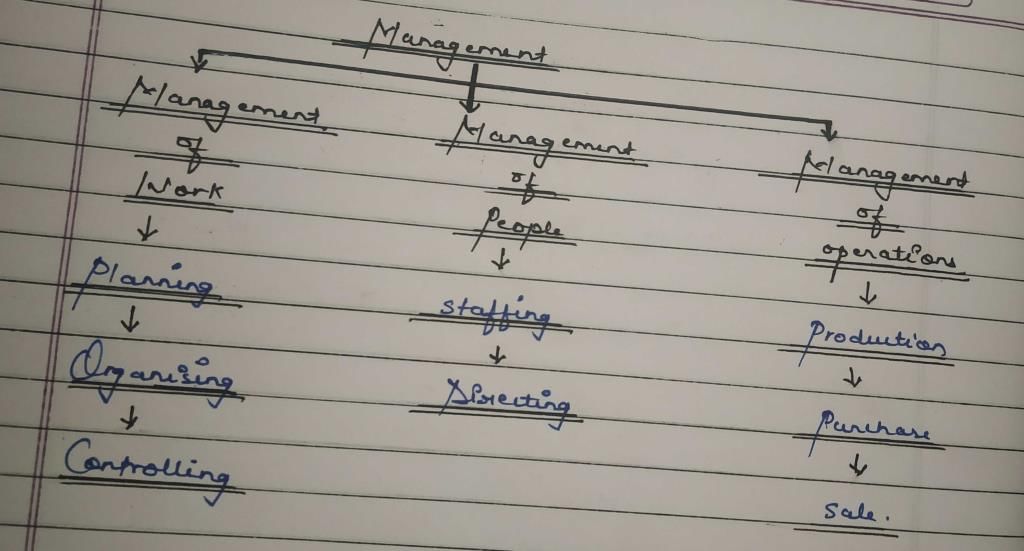 Management
Management
of
Work
Planning
Organising
Controlling
Management
of
People
staffing
Directing
Management
of
operations
Production
Purchase
Sale.